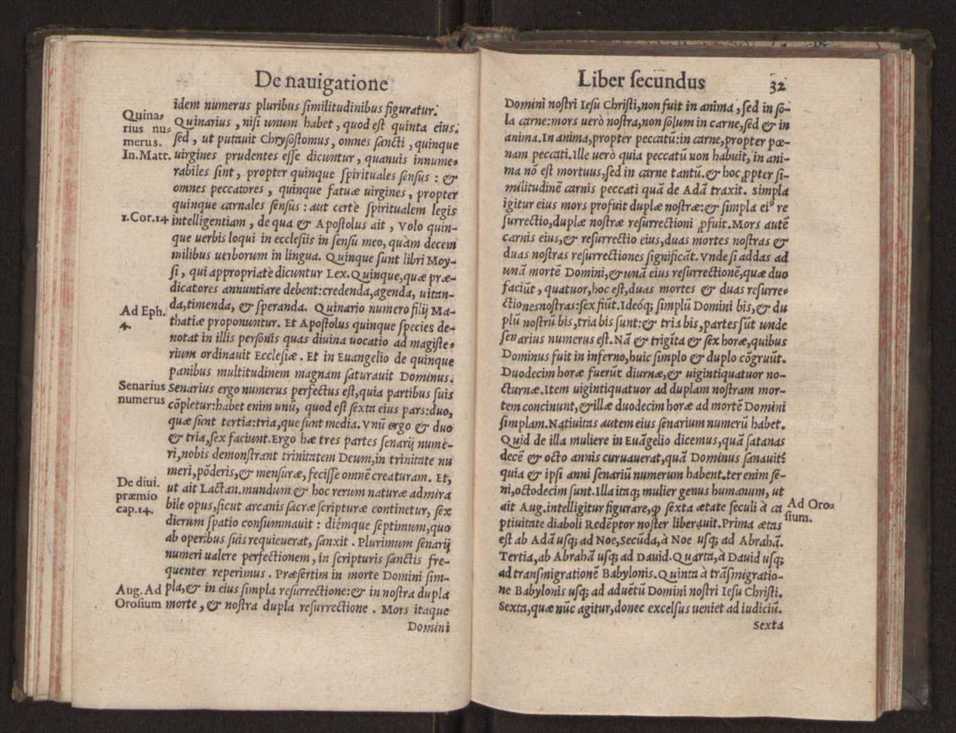 De nauigatione
idem numerus pluribus ſimilitudinibus figuratur.
Quina=
rius nu=
merus.
In.Matt.
Quinarius, niſi unum habet, quod eſt quinta eius.
ſed, ut putauit Chryſoſtomus, omnes ſancti, quinque
uirgines prudentes eſſe dicuntur, quanuis innume=
rabiles ſint, propter quinque ſpirituales ſenſus: &
omnes peccatores, quinque fatuæ uirgines, propter
quinque carnales ſenſus: aut certè ſpiritualem legis
1.Cor.14
intelligentiam, de qua & Apoſtolus ait, Volo quin-
que uerbis loqui in eccleſijs in ſenſu meo, quàm decem
milibus uerborum in lingua. Quinque ſunt libri Moy-
ſi, qui appropriatè dicuntur Lex. Quinque, quæ præ-
dicatores annuntiare debent: credenda, agenda, uitan-
da, timenda, & ſperanda. Quinario numero filij Ma-
Ad Eph.
4.
thatiæ proponuntur. Et Apoſtolus quinque ſpecies de-
notat in illis perſonis quas diuina uocatio ad magiſte=
rium ordinauit Eccleſiæ. Et in Euangelio de quinque
panibus multitudinem magnam ſaturauit Dominus.
Senarius
numerus
Senarius ergo numerus perfectus eſt, quia partibus ſuis
cõpletur: habet enim unũ, quod eſt ſexta eius pars: duo,
quæ ſunt tertia: tria, que ſunt media. Vnũ ergo & duo
& tria, ſex faciunt. Ergo hæ tres partes ſenarij nume-
ri, nobis demonſtrant trinitatem Deum, in trinitate nu
meri, põderis, & menſuræ, feciſſe omnẽ creaturam. Et,
De diui.
præmio
cap.14.
ut ait Lactan. mundum & hoc rerum naturæ admira
bile opus, ſicut arcanis ſacræ ſcripturæ continetur, ſex
dierum ſpatio conſummauit: diẽmque ſeptimum, quo
ab operibus ſuis requieuerat, ſanxit. Plurimum ſenarij
numeri ualere perfectionem, in ſcripturis ſanctis fre-
quenter reperimus. Præſertim in morte Domini ſim-
Aug. Ad
Oroſium
pla, & in eius ſimpla reſurrectione: & in noſtra dupla
morte, & noſtra dupla reſurrectione. Mors itaque
Domini
Liber ſecundus
32
Domini noſtri Ieſu Chriſti, non fuit in anima, ſed in ſo-
la carne: mors uerò noſtra, non ſolum in carne, ſed & in
anima. In anima, propter peccatũ: in carne, propter pœ-
nam peccati. Ille uerò quia peccatũ non habuit, in ani-
ma nõ eſt mortuus, ſed in carne tantũ. & hoc ꝓpter ſi-
militudinẽ carnis peccati quã de Adã traxit. Simpla
igitur eius mors profuit duplæ noſtræ: & ſimpla eiꝰ re
ſurrectio, duplæ noſtræ reſurrectioni ꝓfuit. Mors autẽ
carnis eius, & reſurrectio eius, duas mortes noſtras &
duas noſtras reſurrectiones ſignificãt. Vnde ſi addas ad
unã mortẽ Domini, & unã eius reſurrectionẽ, quæ duo
faciũt, quatuor, hoc eſt, duas mortes & duas reſurre=
ctiones noſtras: ſex fiũt. Ideóq; ſimplũ Domini bis, & du
plũ noſtrũ bis, tria bis ſunt: & tria bis, partes ſũt unde
ſenarius numerus eſt. Nã & trigĩta & ſex horæ, quibus
Dominus fuit in inferno, huic ſimplo & duplo cõgruũt.
Duodecim horæ fuerũt diurnæ, & uigintiquatuor no-
cturnæ. Item uigintiquatuor ad duplam noſtram mor-
tem concinunt, & illæ duodecim horæ ad mortẽ Domini
ſimplam. Natiuitas autem eius ſenarium numerũ habet.
Quid de illa muliere in Euãgelio dicemus, quã ſatanas
decẽ & octo annis curuauerat, quã Dominus ſanauit?
quia & ipſi anni ſenariũ numerum habent. ter enim ſe-
ni, octodecim ſunt. Illa itaq; mulier genus humanum, ut
Ad Oro=
ſium.
ait Aug. intelligitur figurare, ꝙ ſexta ætate ſeculi à ca
ptiuitate diaboli Redẽptor noſter liberauit. Prima ætas
eſt ab Adã uſq; ad Noe, Secũda, à Noe uſq; ad Abrahã.
Tertia, ab Abrahã uſq; ad Dauid. Quarta, à Dauid uſq;
ad tranſmigrationẽ Babylonis. Quinta à trãſmigratio-
ne Babylonis uſq; ad aduẽtũ Domini noſtri Ieſu Chriſti.
Sexta, quæ nũc agitur, donec excelſus ueniet ad iudiciũ.
Sexta